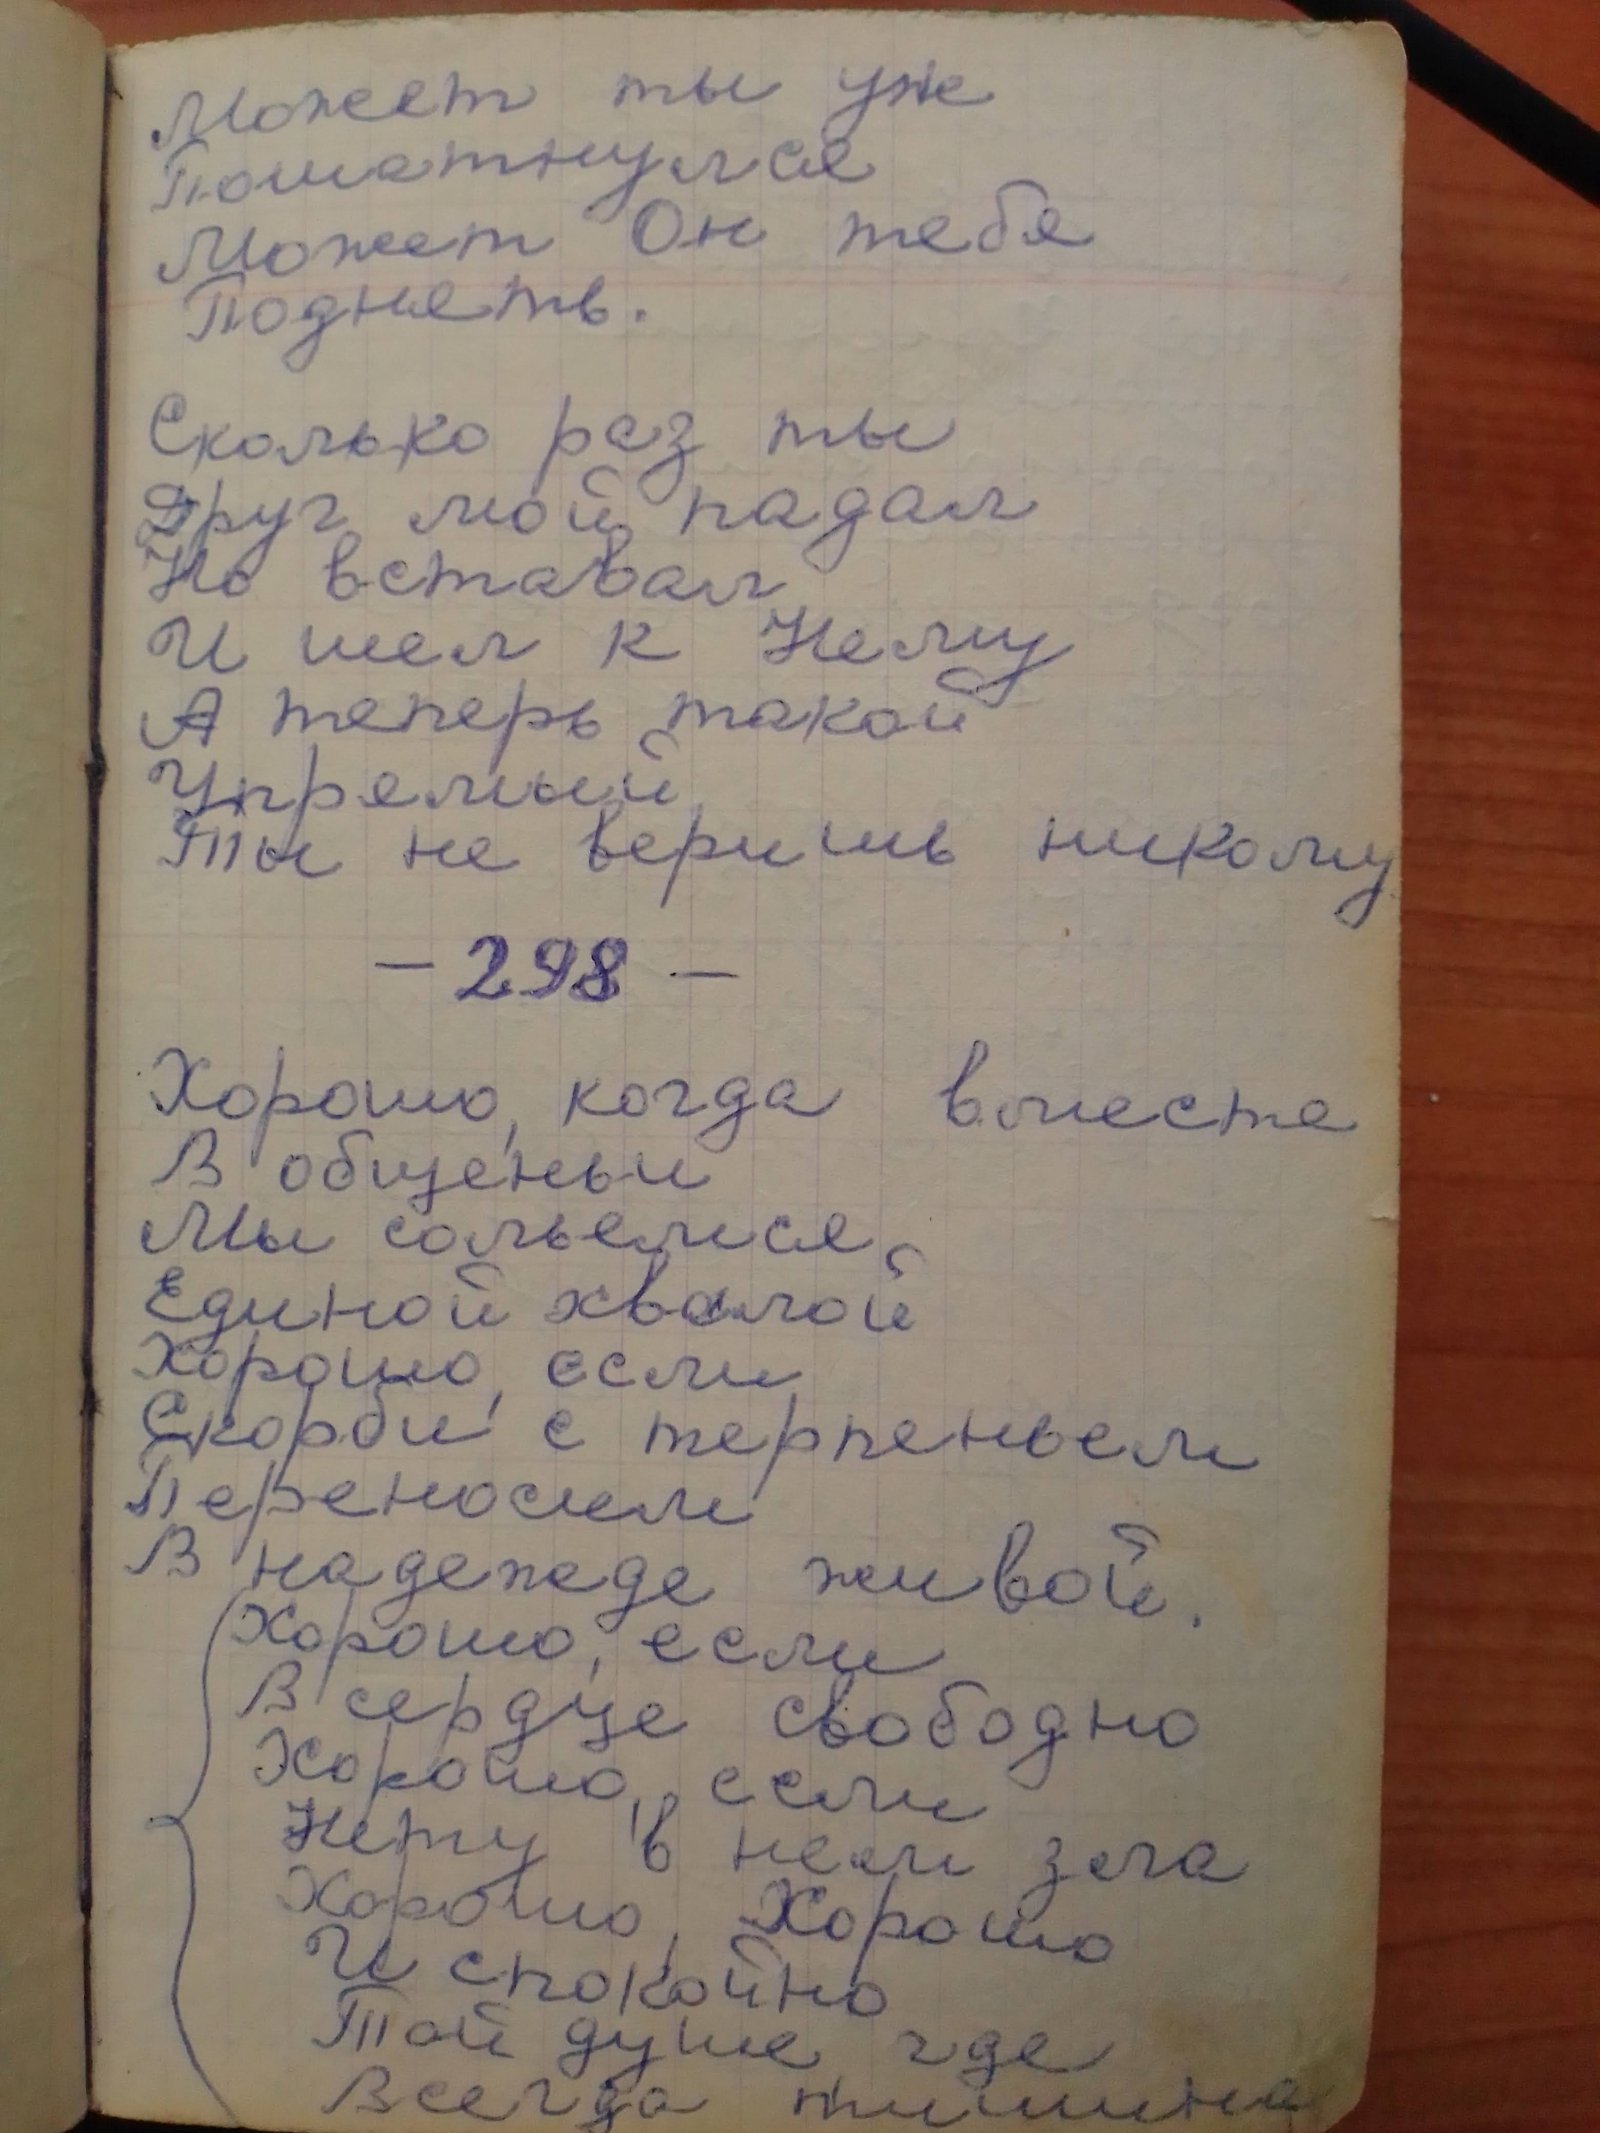 Может ты уже
Пошатнулся
Может Он тебя
Поднять.
Сколько раз ты
Друг мой падал
Но вставал
И шел к Нему
А теперь такой
Упрямый
Ты не веришь никому
- 298 -
Хорошо, когда вместе
В общеньи
Мы сольемся
Единой хвалой
Хорошо, если
Скорби с терпеньем
Переносим
В надежде живой.
Хорошо, если
В сердце свободно
Хорошо, если
Нету в нем зла
Хорошо, Хорошо
И спокойно
Той душе где
Всегда тишина